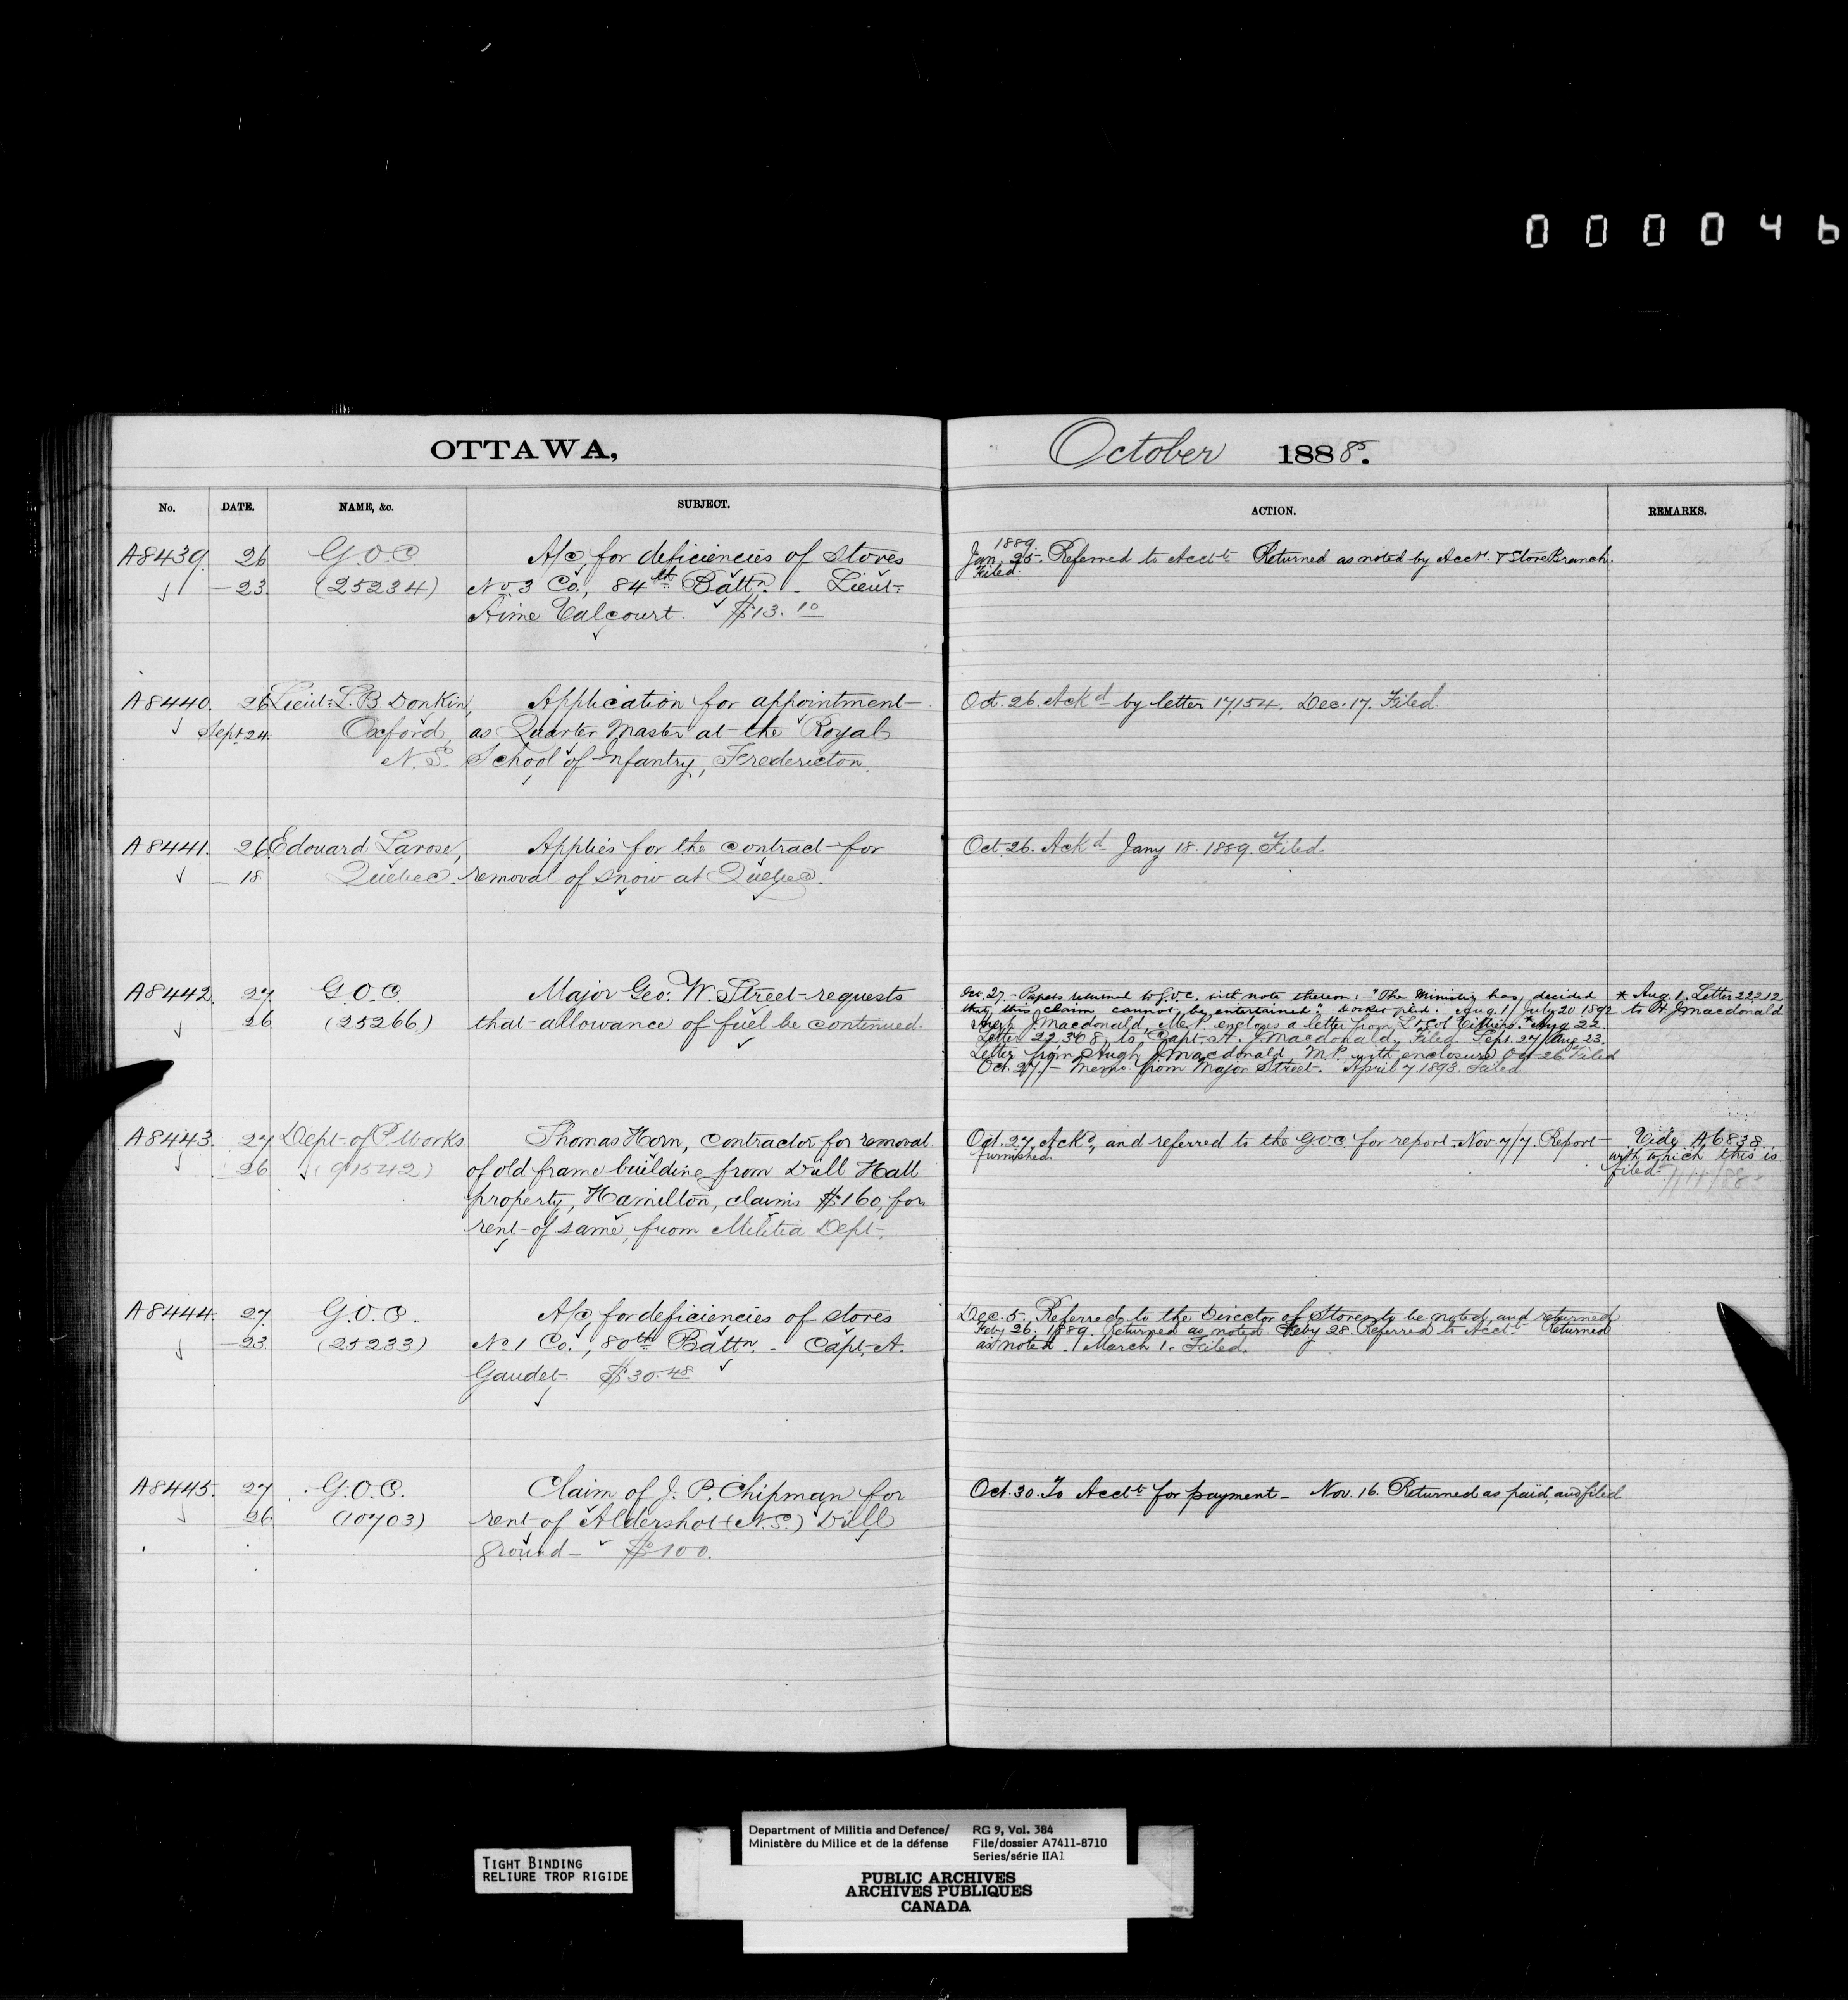 000046
OTTAWA,
October 1888.
No. DATE. NAME, &c. SUBJECT. ACTION. REMARKS.
A8439. 26 G.O.C A/c for deficiencies of stores
23. (25234) No. 3 Co., 84th Battn. - Lieut:
Aimé Talcourt. $13.10
1889
Jan. 25. Referred to Acctt Returned as noted by Acct. & Store Branch.
Filed.
A8440. 26 Lieut: L. B. Donkin, Application for appointment
Sept. 24. Oxford, as Quarter Master at the Royal
N.S. School of Infantry, Fredericton.
Oct. 26. Ackd by letter 17,154. Dec. 17. Filed.
A8441. 26 Edouard Larose, Applies for the contract for
18 Quebec. removal of snow at Quebec.
Oct. 26. Ackd Jany 18. 1889. Filed.
A8442. 27 G.O.C. Major Geo. W. Street requests
26 (25266) that allowance of fuel be continued.
Oct. 27. - Papers returned to G.O.C. with note thereon: "The Minister has decided
that this claim cannot be entertained". Docket filed. Aug. 1/ July 20 1892
Hugh J. Macdonald, M.P. encloses a letter from Lt. Col * Aug 22.
Letter 22368, to Capt. H. J. Macdonald. Filed. Sept. 27/Aug. 23.
Letter from Hugh J. Macdonald, M.P. with enclosure Oct 26 Filed
Oct. 27/- Memo. from Major Street. April 7 1893. Filed
* Aug. 1. Letter 22212
to H. J. Macdonald
A8443. 27 Dept. of P. Works. Thomas Horn, contractor for removal
26 (91542) of old frame building from Drill Hall
property, Hamilton, claims $160, for
rent of same, from Militia Dept.
Oct. 27, Ackd, and referred to the GOC for report - Nov. 7/7. Report
furnished.
Vide A6838.
with which this is
filed. 7/11/88
A8444. 27 G.O.C. A/c for deficiencies of stores
23 (25233) No 1 Co., 80th Battn. - Capt. A.
Gaudet. $30.48
Dec. 5. Referred to the Director of Stores to be noted, and returned
Feby 26, 1889. Returned as noted Feby 28. Referred to Acctt. Returned
as noted. March 1. Filed.
A8445. 27 G.O.C. Claim of J. P. Chipman for
26 (10703) rent of Aldershot (N.S.) Drill
ground - $100.
Oct. 30. To Acctt for payment - Nov. 16. Returned as paid, and filed
TIGHT BINDING
RELIURE TROP RIGIDE
Department of Militia and Defence/
Ministère du Milice et de la défense
RG 9, Vol. 384
File/dossier A7411-8710
Series/série IIA1
PUBLIC ARCHIVES
ARCHIVES PUBLIQUES
CANADA